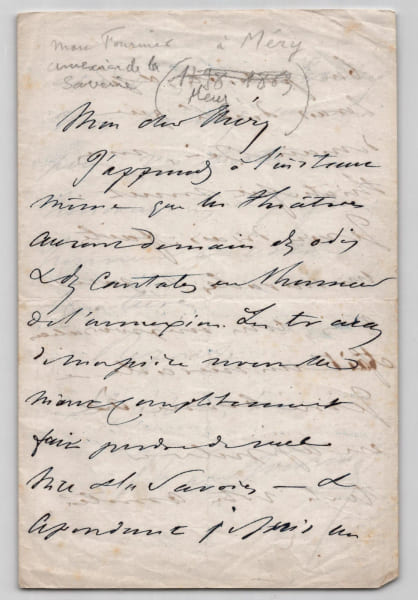 Marc Fournier à Méry
annexion de la
Savoie
1798-1863
Méry
Mon cher Méry
J'apprends à l'instant
même que les théâtres
auront demain des odes
& des cantates en l'honneur
de l'annexion. Les tracas
de ma pièce nouvelle
m'ont complètement
fait perdre de vue
Nice & la Savoie — &
cependant je suis un